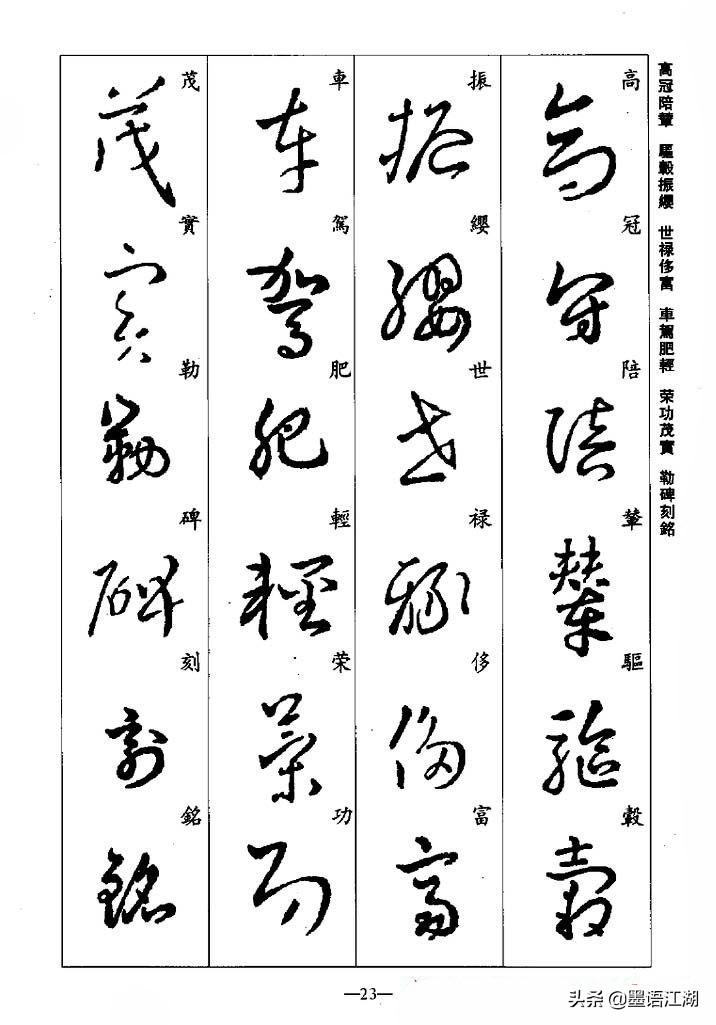 高冠陪輦　驅轂振纓　世禄侈富　車駕肥輕　荣功茂實　勒碑刻銘
高冠陪輦驅轂
振纓世禄侈富
車駕肥輕荣功
茂實勒碑刻銘
—23—
头条 @墨语江湖